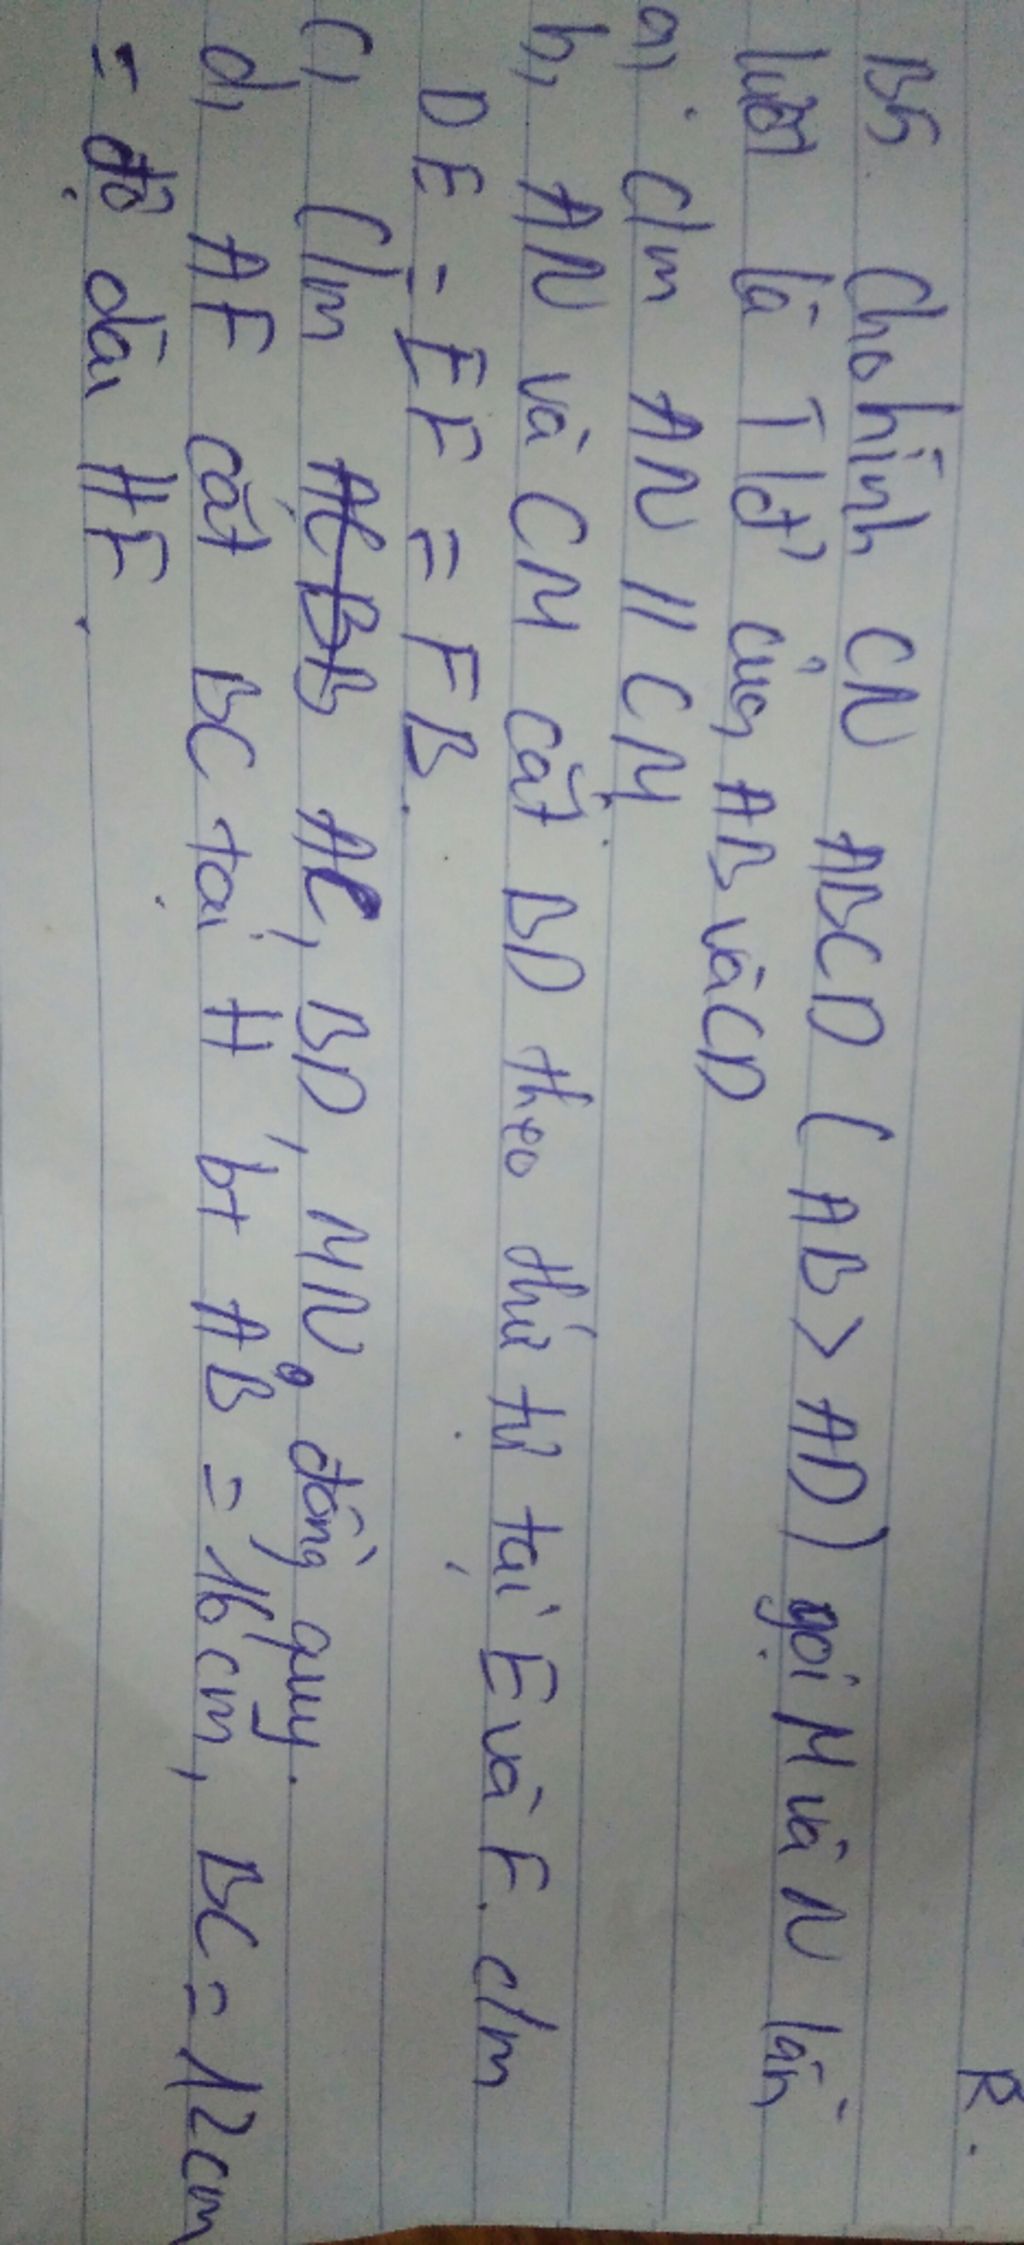 R.
B5 Cho hình CN ABCD ( AB > AD) gọi M và N lần
lượt là Tđ' của AB và CD
a, C/m AN // CM
b, AN và CM cắt BD theo thứ tự tại E và F. c/m
DE = EF = FB.
c, C/m AC, BD, MN, đồng quy.
d, AF cắt BC tại H bt AB = 16cm, BC = 12cm
= độ dài HF.